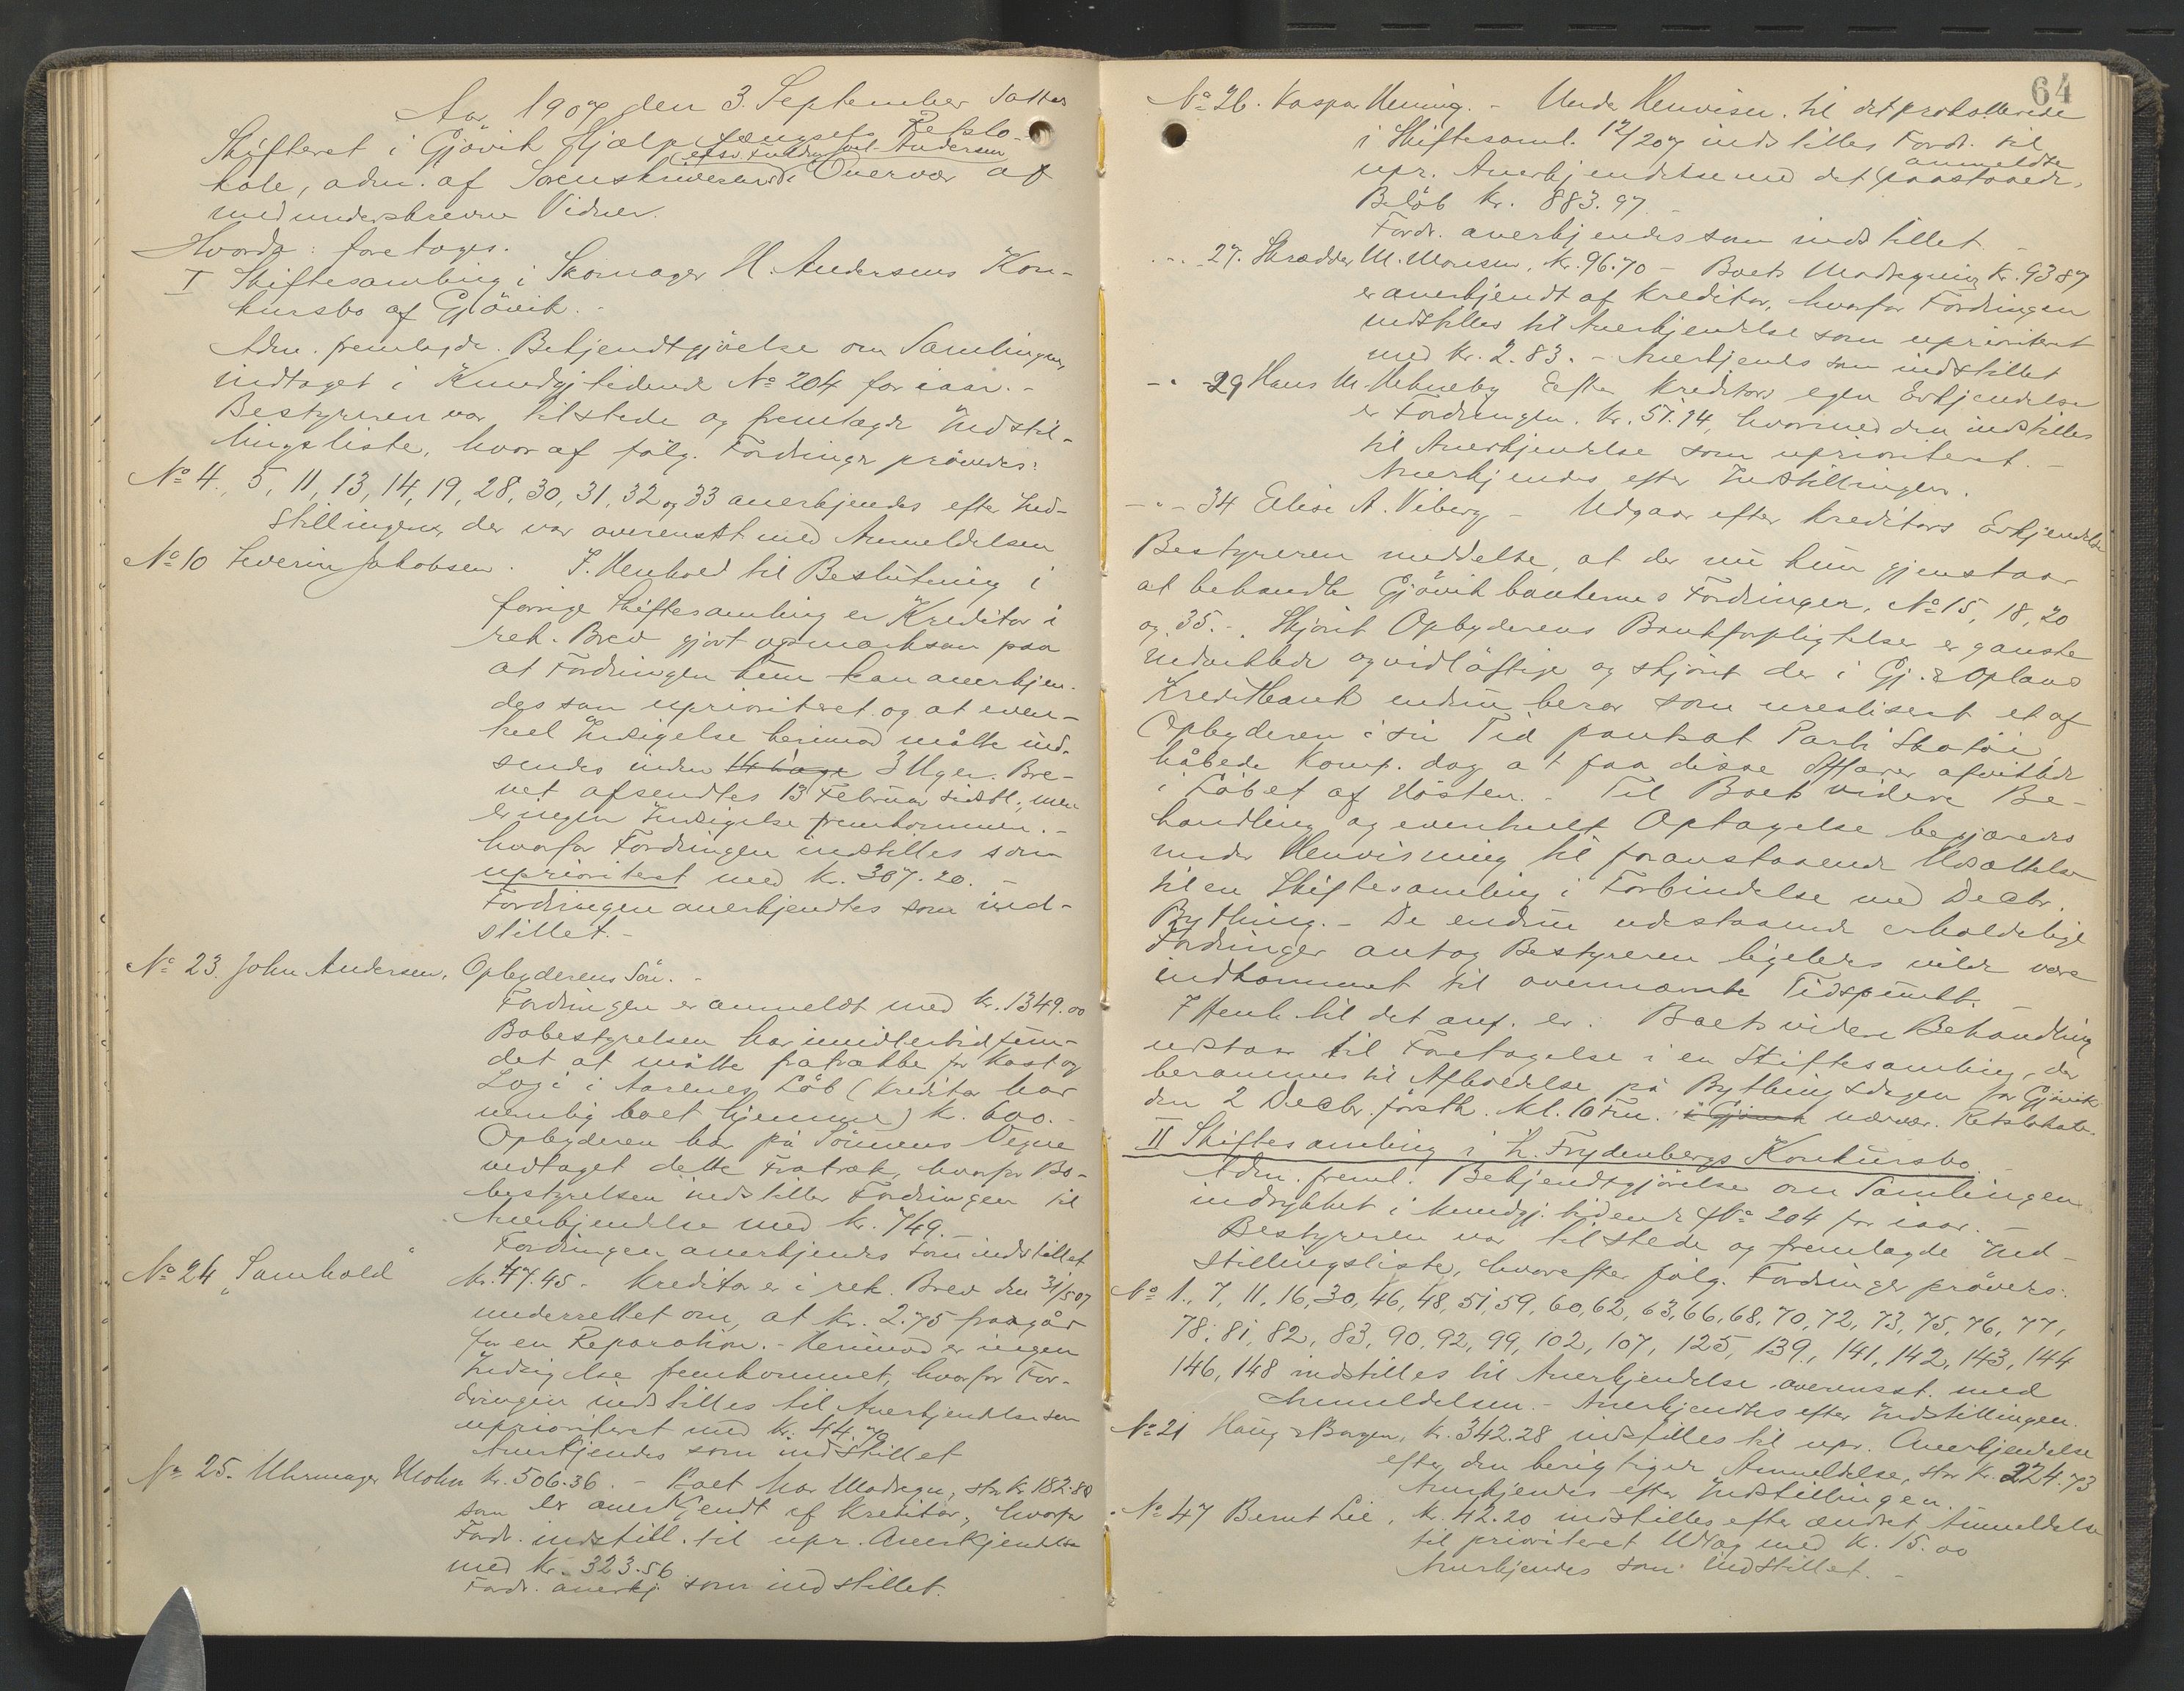 Aar 1907 den 3. September sattes
Skifteret i Gjövik Hjælpefængsels Retslo-
kale, adm. af Sorenskriveren i Overvær af
edsv. Fuldm. Andersen
medunderskrevne Vidner.
Hvorda: foretoges.
I Skiftesamling i Skomager H. Andersens Kon-
kursbo af Gjövik. -
Adm. fremlagde Bekjendtgjörelse om Samlingen,
indtaget i Kundgj.tidende No 204 for iaar. -
Bestyreren var tilstede og fremlagde Indstil-
lingsliste, hvoraf fölg. Fordringer prövedes:
No 4, 5, 11, 13, 14, 19, 28, 30, 31, 32 og 33 anerkjendes efter Ind-
stillingen, der var overensst. med Anmeldelsen
No 10 Severin Jakobsen. I Henhold til Beslutning i
forrige Skiftesamling er Kreditor i
rek. Brev gjort opmærksom paa
at Fordringen kun kan anerkjen-
des som uprioriteret og at even-
tuel Indsigelse herimod måtte ind-
sendes inden 14 Dage 3 Uger. Bre-
vet afsendtes 13 Februar sidstl., men
er ingen Indsigelse fremkommen. -
hvorfor Fordringen indstilles som
uprioritert med Kr. 307.20. -
Fordringen anerkjendtes som ind-
stillet. -
No 23. John Andersen, Opbyderens Sön. -
Fordringen er anmeldt med Kr. 1349.00
Bobestyrelsen har imidlertid fun-
det at måtte fratrække for Kost og
Logi i Aarenes Löb (Kreditor har
nemlig boet hjemme) K. 600. -
Opbyderen har på Sönnens Vegne
vedtaget dette Fratræk, hvorfor Bo-
bestyrelsen indstiller Fordringen til
Anerkjendelse med Kr. 749. -
Fordringen anerkjendes som indstillet
No 24 "Samhold" Kr. 47.45. Kreditor er i rek. Brev den 31/5 07
underrettet om, at Kr. 2.75 fragår
for en Reparation. - Herimod er ingen
Indsigelse fremkommet, hvorfor For-
dringen indstilles til Anerkjendelse som
uprioriteret med Kr. 44.70
Anerkjendes som indstillet
No 25. Uhrmager Mohn Kr. 506.36. - Boet har Modregn., stor Kr. 182.80
som er anerkjendt af Kreditor, hvorfor
Fordr. indstill. til upr. Anerkjendelse
med Kr. 323.56
Fordr. anerkj. som indstillet.
64
No 26. Kaspar Henning. - Under Henvisn. til det protokollerede
i Skiftesaml. 12/2 07 indstilles Fordr. til
upr. Anerkjendelse med det paastaaede,
anmeldte
Belöb Kr. 883.97
Fordr. anerkjendes som indstillet. -
- " - 27. Skrædder M. Monsen, Kr. 96.70 - Boets Modregning Kr. 93.87
er anerkjendt af Kreditor, hvorfor Fordringen
indstilles til Anerkjendelse som uprioriteret
med Kr. 2.83. - Anerkjendes som indstillet
- " - 29 Hans M. Efter Kreditors egen Erkjendelse
er Fordringen Kr. 51.14, hvormed den indstilles
til Anerkjendelse som uprioriteret. -
Anerkjendes efter Indstillingen.
- " - 34 Elise A. Viberg - Udgaar efter Kreditors Erkjendelse
Bestyreren meddelte, at der nu kun gjenstaar
at behandle Gjövikbankernes Fordringer, No 15, 18, 20
og 35. - Skjönt Opbyderens Bankforpligtelser er ganske
indviklede og vidlöftige og skjönt der i Gj. & Oplands
Kreditbank endnu beror som urealisert et af
Opbyderen i sin Tid pantsat Parti Skotöi,
håbede Komp. dog at faa disse Affærer afviklede
i Löbet af Hösten. - Til Boets videre Be-
handling og eventuelt Optagelse begjæredes
under Henvisning til foranstaaende Udsættelse
til en Skiftesamling i Forbindelse med Decbr.
Bything. - De endnu udestaaende erholdelige
Fordringer antog Bestyreren ligeledes vilde være
indkommet til ovennævnte Tidspunkt. -
I Henh. til det anf. er: Boets videre Behandling
udstaar til Foretagelse i en Skiftesamling, der
berammes til Afholdelse på Bythingsdagen for Gjövik
den 2 Decbr. förstk. Kl. 10 Fm. i Gjövik nærvær. Retslokale.
II Skiftesamling i H. Frydenbergs Konkursbo.
Adm. freml. Bekjendtgjörelse om Samlingen
indrykket i Kundgj.tidende No 204 for iaar. -
Bestyreren var tilstede og fremlagde Ind-
stillingsliste, hvorefter fölg. Fordringer prövedes:
No 1, 7, 11, 16, 30, 46, 48, 51, 59, 60, 62, 63, 66, 68, 70, 72, 73, 75, 76, 77,
78, 81, 82, 83, 90, 92, 99, 102, 107, 125, 139, 141, 142, 143, 144
146, 148 indstilles til Anerkjendelse overensst. med
Anmeldelsen. - Anerkjendtes efter Indstillingen.
No 21 Haug & Borgen, Kr. 342.28 indstilles til upr. Anerkjendelse
efter den berigtigede Anmeldelse, stor Kr. 224.73
Anerkjendes efter Indstillingen.
No 47 Bernt Lie, Kr. 42.20 indstilles efter ændret Anmeldelse
til prioriteret Udlæg med K. 15.00
Anerkjendes som Indstillet. -